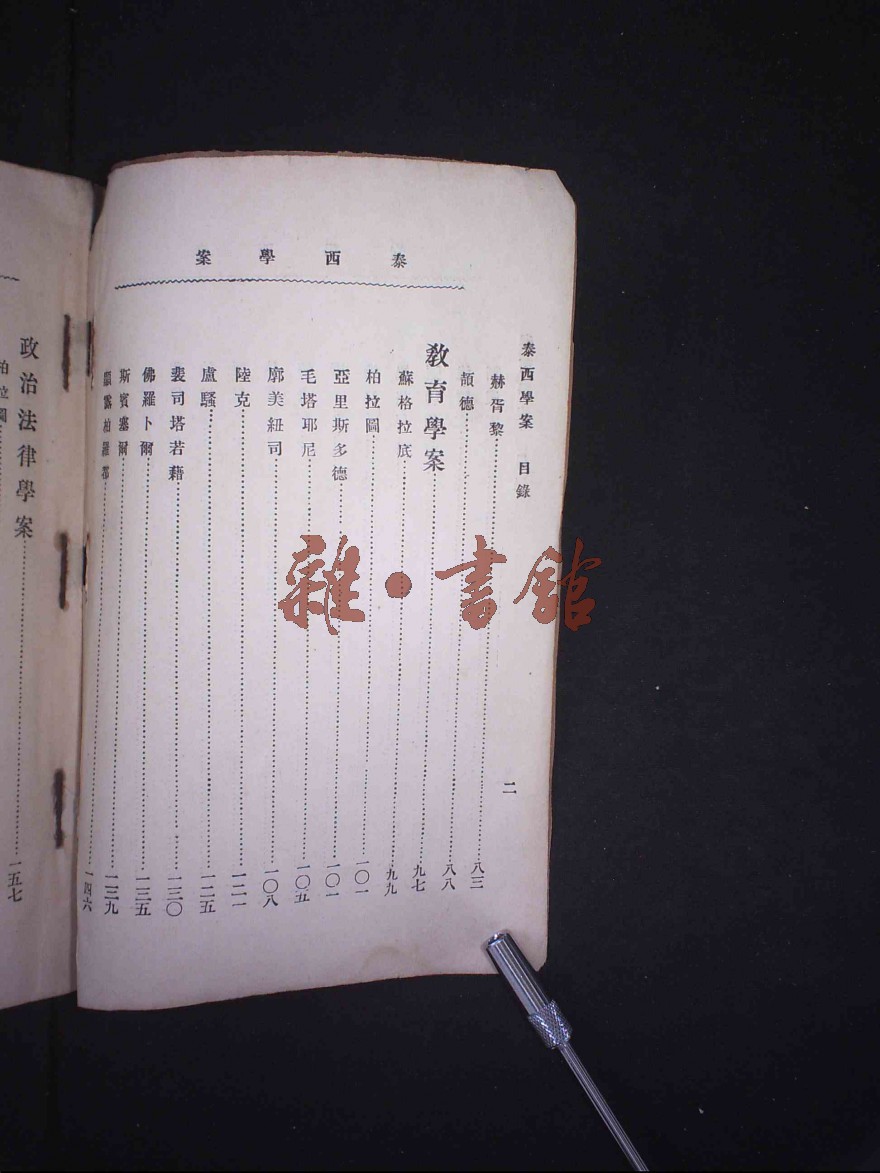 泰西學案
泰西學案 目錄
二
赫胥黎 八三
頡德 八八
教育學案 九七
蘇格拉底 九九
柏拉圖 一〇一
亞里斯多德 一〇一
毛塔耶尼 一〇五
廓美紐司 一〇八
陸克 一二一
盧騷 一二五
裴司塔若藉 一三〇
佛羅卜爾 一三五
斯賓塞爾 一三九
一四六
政治法律學案 一五七
柏拉圖
雜·書館